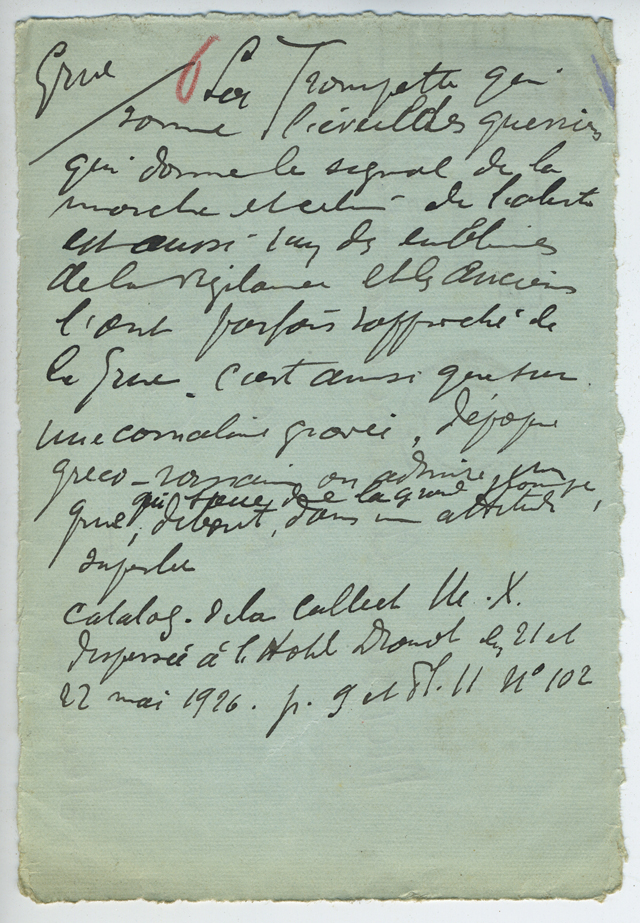 Grue
6 La Trompette qui
sonne l'éveil des guerriers
qui donne le signal de la
marche et celui de l'alerte
est aussi l'un des emblèmes
de la vigilance et les Anciens
l'ont parfois rapproché de
la Grue. C'est ainsi que sur
une cornaline gravée, d'époque
gréco-romaine on admire une
qui sonne de la grande trompe,
grue, debout, dans un attitude
superbe
catalog. de la Collect M. X.
dispersée à l'Hotel Drouot les 21 et
22 mai 1926. p. 9 et Pl. II N° 102